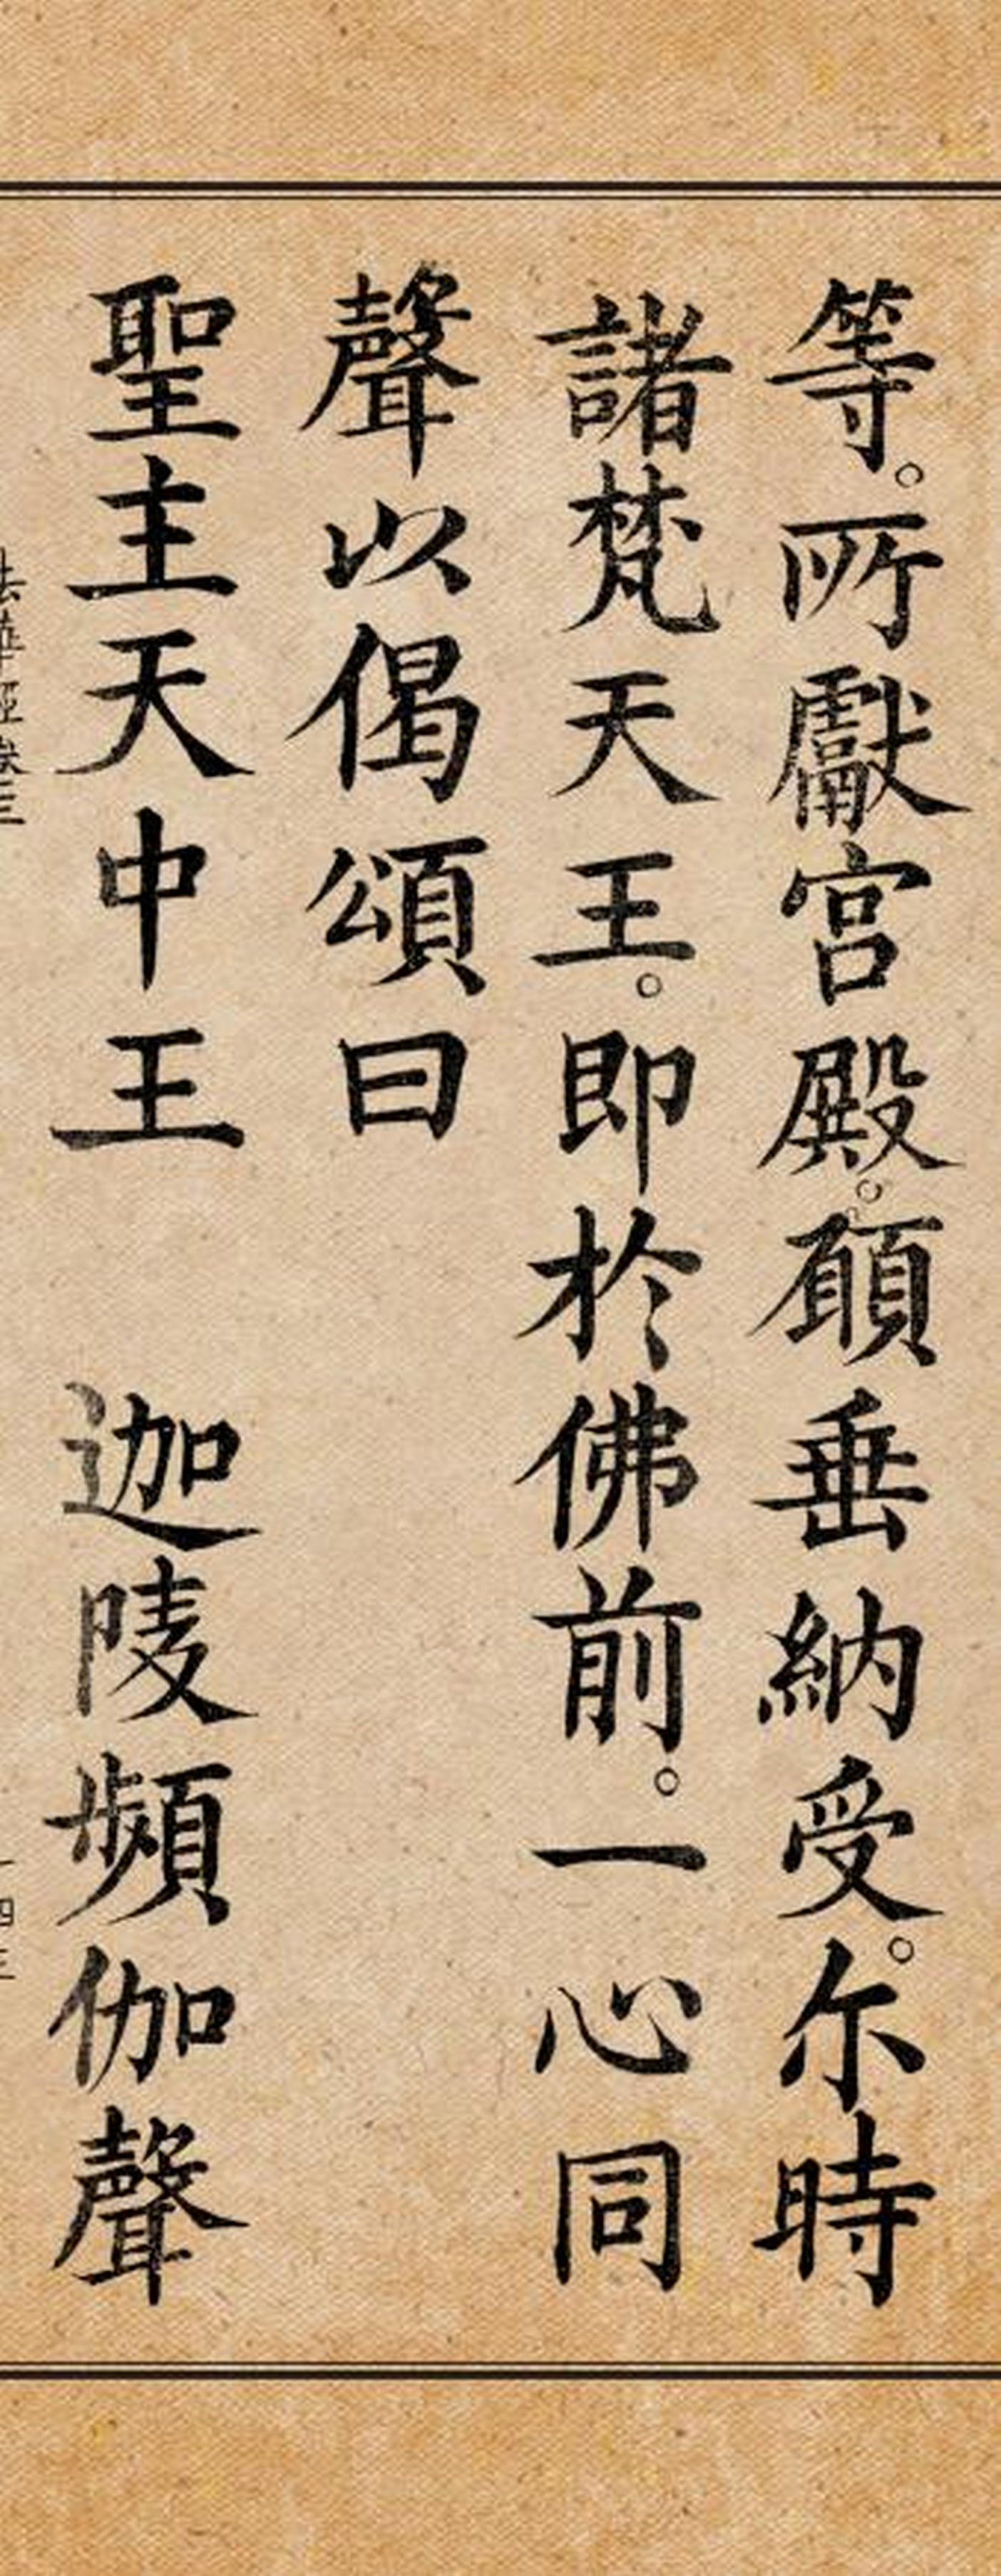 等。所獻宮殿。願垂納受。尔時
諸梵天王。即於佛前。一心同
聲以偈頌曰
聖主天中王　迦陵頻伽聲